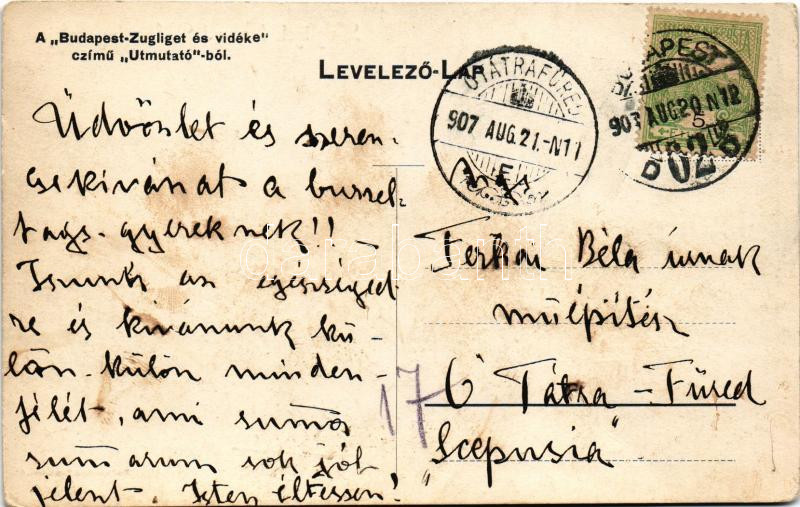 A „Budapest-Zugliget és vidéke“
czímű „Utmutató“-ból.
LEVELEZŐ-LAP
ÓTÁTRAFÜRED
907 AUG.21.-N11
E
BUDAPEST
907 AUG20.N12
5
D 028
Üdvözlet és szeren-
csekívánat a
gyereknek!!
Iszunk az egészséged-
re és kívánunk kü-
lön-külön minden-
jólét, ami summa
summarum sok jót
jelent. Isten éltessen!
17
Ferkai Béla úrnak
műépítész
Ó Tátra-Füred
„Scepusia“
darabanth